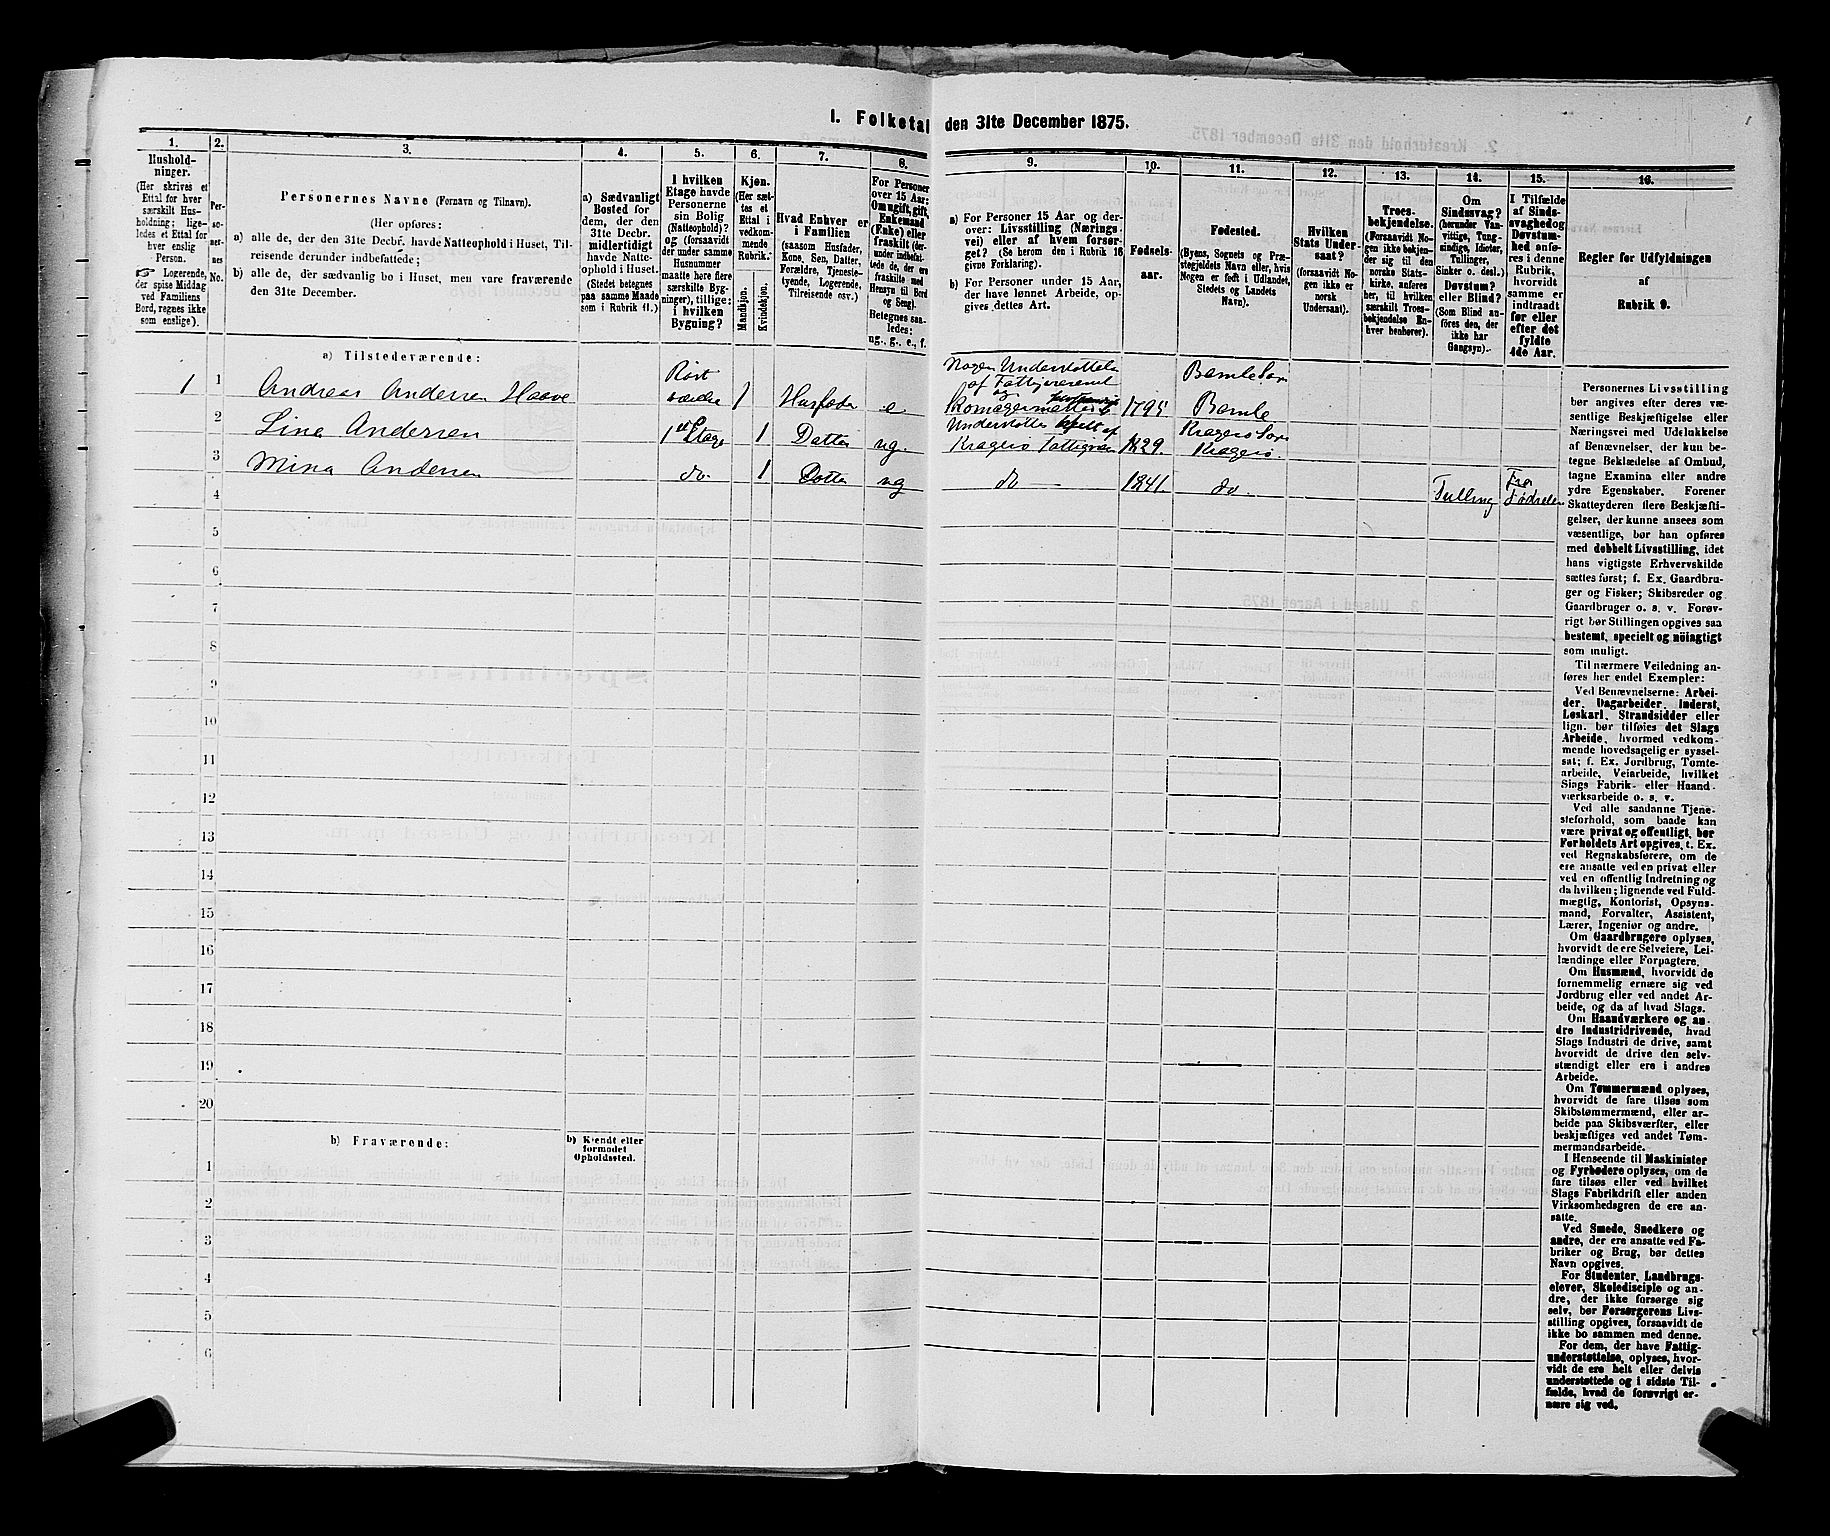 1. Folketal den 31te December 1875.
1. 2. 3. 4. 5. 6. 7. 8. 9. 10. 11. 12. 13. 14. 15. 16.
Hushold-
ninger.
(Her skrives et
Ettal for hver
særskilt Hus-
holdning; lige-
ledes et Ettal for
hver enslig
Person.
☞ Logerende,
der spise Middag
ved Familiens
Bord, regnes ikke
som enslige).
Per-
so-
ner-
nes
No.
Personernes Navne (Fornavn og Tilnavn).
(Her opføres:
a) alle de, der den 31te Decbr. havde Natteophold i Huset, Til-
reisende derunder indbefattede;
b) alle de, der sædvanlig bo i Huset, men vare fraværende
den 31te December.
a) Sædvanligt
Bosted for
dem, der den
31te Decbr.
midlertidigt
havde Natte-
ophold i Huset.
(Stedet betegnes
paa samme Maade
som i Rubrik 11.)
I hvilken
Etage havde
Personerne
sin Bolig
(Natteophold)?
og (forsaavidt
der under samme
Husnummer
maatte være flere
særskilte Byg-
ninger), tillige:
i hvilken
Bygning?
Kjøn.
(Her sæt-
tes et
Ettal i
vedkom-
mende
Rubrik.)
Mandkjøn.
Kvindekjøn.
Hvad Enhver er
i Familien
(saasom Husfader,
Kone, Søn, Datter,
Forældre, Tjeneste-
tyende, Logerende,
Tilreisende osv.)
For Personer
over 15 Aar:
Om ugift, gift,
Enkemand
(Enke) eller
fraskilt (der-
under indbefat-
tede de, der ere
fraskilte med
Hensyn til Bord
og Seng).
Betegnes saa-
ledes:
ug., g., e., f.
a) For Personer 15 Aar og der-
over: Livsstilling (Nærings-
vei) eller af hvem forsør-
get? (Se herom den i Rubrik 16
givne Forklaring).
b) For Personer under 15 Aar,
der have lønnet Arbeide, op-
gives dettes Art.
Fødsels-
aar.
Fødested.
(Byens, Sognets og Præ-
stegjeldets Navn eller, hvis
Nogen er født i Udlandet,
Stedets og Landets
Navn).
Hvilken
Stats Under-
saat?
(forsaavidt No-
gen ikke er
norsk
Undersaat).
Troes-
bekjendelse.
(Forsaavidt No-
gen ikke bekjen-
der sig til den
norske Stats-
kirke, anføres
her, til hvilken
særskilt Troes-
bekjendelse En-
hver henhører).
Om
Sindssvag?
(herunder Van-
vittige, Tung-
sindige, Idioter,
Tullinger,
Sinker o. desl.)
Døvstum?
eller Blind?
(Som Blind an-
føres den, der
ikke har
Gangsyn).
I Tilfælde
af Sinds-
svaghed og
Døvstum-
hed anfø-
res i denne
Rubrik,
hvorvidt
samme er
indtraadt
før eller
efter det
fyldte
4de Aar.
Regler for Udfyldningen
af
Rubrik 9.
a) Tilstedeværende:
1 1 Andreas Andersen Haave 1 Husfader e 1795 Bamle Sogn Bamle
2 Lina Andersen 1ste Etage 1 Datter ug. 1829. Kragerø Sogn Kragerø
3 Mina Andersen do. 1 Datter ug do 1841. do. Tulling Fra Fødselen
4
5
6
7
8
9
10
11
12
13
14
15
16
17
18
19
20
b) Fraværende:
b) Kjendt eller
formodet
Opholdssted.
1
2
3
4
5
6
Personernes Livsstilling
bør angives efter deres væ-
sentlige Beskjæftigelse eller
Næringsvei med Udelukkelse
af Benævnelser, der kun be-
tegne Beklædelse af Ombud,
tagne Examina eller andre
ydre Egenskaber. Forener
Skatteyderen flere Beskjæfti-
gelser, der kunne ansees som
væsentlige, bør han opføres
med dobbelt Livsstilling, idet
hans vigtigste Erhvervskilde
sættes først; f. Ex. Gaardbru-
ger og Fisker; Skibsreder og
Gaardbruger o. s. v. Forøv-
rigt bør Stillingen opgives saa
bestemt, specielt og nöiagtigt
som muligt.
Til nærmere Veiledning an-
føres her endel Exempler:
Ved Benævnelserne: Arbei-
der, Dagarbeider, Inderst,
Løskarl, Strandsidder eller
lign. bør tilføies det Slags
Arbeide, hvormed vedkom-
mende hovedsagelig er syssel-
sat; f. Ex. Jordbrug, Tomte-
arbeide, Veiarbeide, hvilket
Slags Fabrik- eller Haand-
værksarbeide o. s. v.
Ved alle saadanne Tjene-
steforhold, som baade kan
være privat og offentligt, bør
Forholdets Art opgives, t. Ex.
ved Regnskabsførere, om de
ere ansatte ved en privat eller
ved en offentlig Indretning og
da hvilken; lignende ved Fuld-
mægtig, Kontorist, Opsyns-
mand, Forvalter, Assistent,
Lærer, Ingeniør og andre.
Om Gaardbrugere oplyses,
hvorvidt de ere Selveiere, Lei-
lændinge eller Forpagtere.
Om Husmænd, hvorvidt de
fornemmelig ernære sig ved
Jordbrug eller ved andet Ar-
beide, og da af hvad Slags.
Om Haandværkere og an-
dre Industridrivende, hvad
Slags Industri de drive, samt
hvorvidt de drive den selv-
stændigt eller ere i andres
Arbeide.
Om Tømmermænd oplyses,
hvorvidt de fare tilsøs som
Skibstømmermænd, eller ar-
beide paa Skibsværfter, eller
beskjæftiges ved andet Tøm-
mermandsarbeide.
I Henseende til Maskinister
og Fyrbødere oplyses, om de
fare tilsøs eller ved hvilket
Slags Fabrikdrift eller anden
Virksomhedsgren de ere an-
satte.
Ved Smede, Snedkere og
andre, der ere ansatte ved Fa-
briker og Brug, bør dettes
Navn opgives.
For Studenter, Landbrugs-
elever, Skoledisciple og an-
dre, der ikke forsørge sig
selv, bør Forsørgerens Livs-
stilling opgives, forsaavidt de
ikke bo sammen med denne.
For dem, der have Fattig-
understøttelse, oplyses, hvor-
vidt de ere helt eller delvis
understøttede og i sidste Til-
fælde, hvad de forøvrigt er-
nære sig ved.